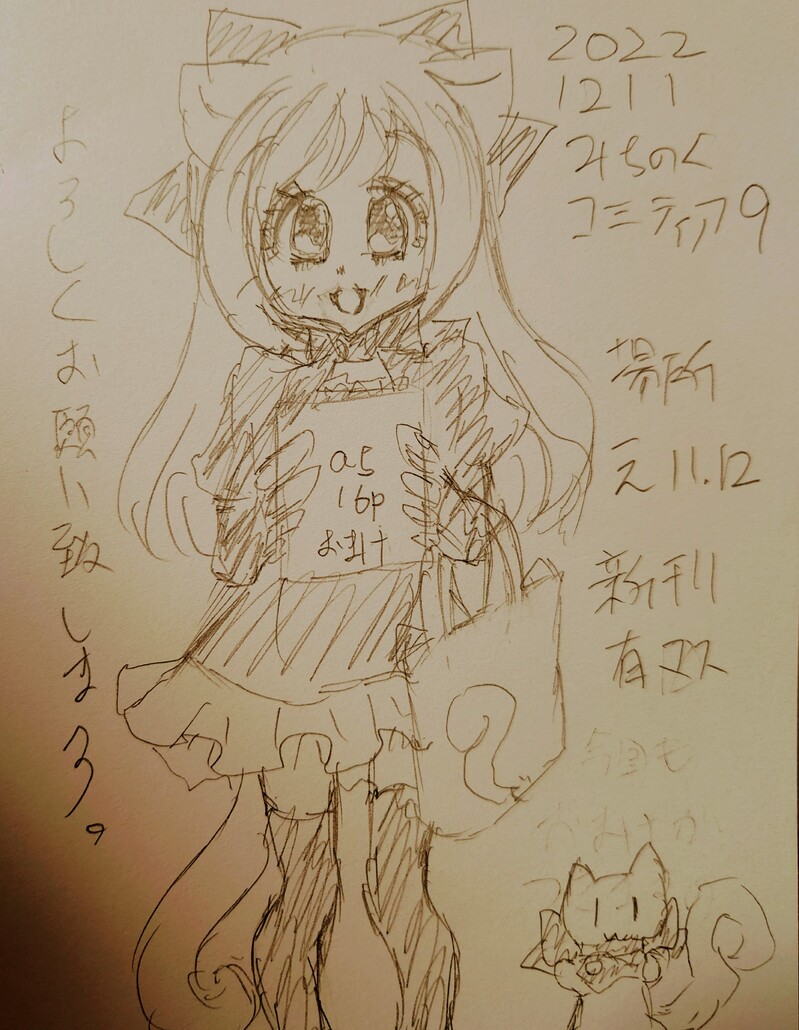 2022
1211
みちのく
コミティア9
場所
え11.12
新刊
有マス
今回も
おまけが
a5
16p
おまけ
よろしくお願い致しまする。